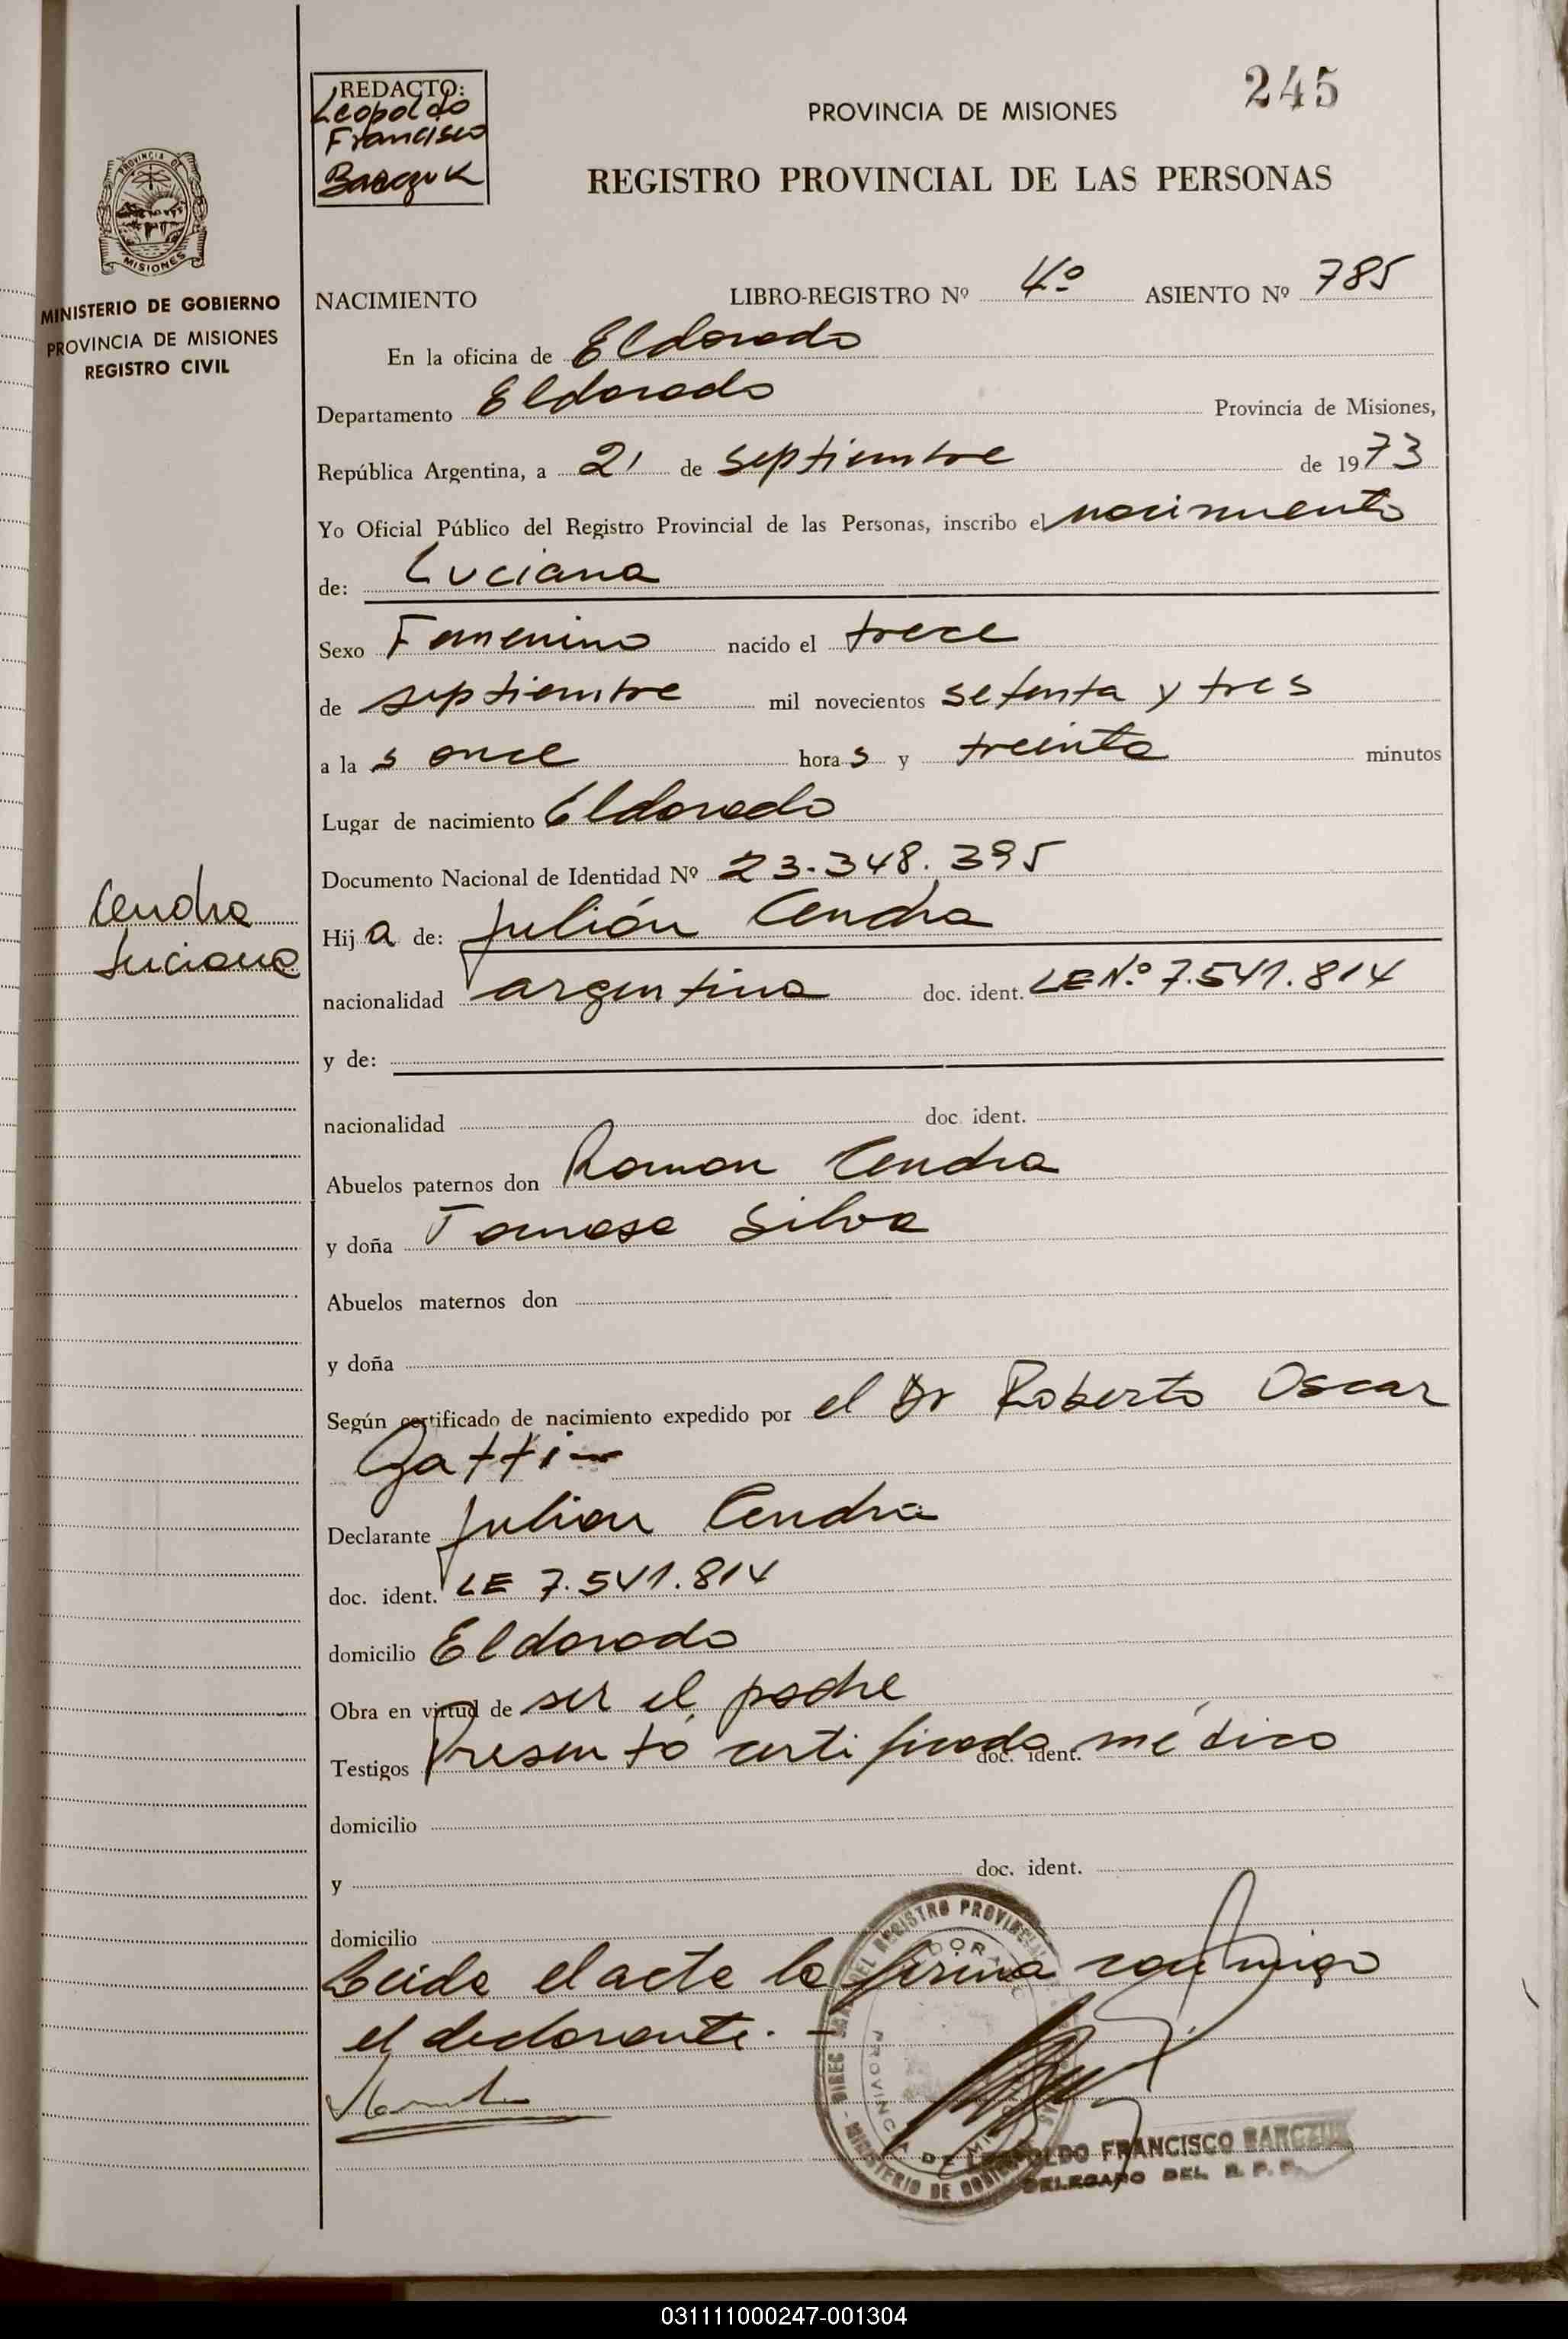 245
REDACTO:
Leopoldo
Francisco
Barczuk
PROVINCIA DE MISIONES
REGISTRO PROVINCIAL DE LAS PERSONAS
PROVINCIA DE
MISIONES
MINISTERIO DE GOBIERNO
PROVINCIA DE MISIONES
REGISTRO CIVIL
NACIMIENTO LIBRO-REGISTRO Nº 4º ASIENTO Nº 785
En la oficina de Eldorado
Departamento Eldorado Provincia de Misiones,
República Argentina, a 21 de septiembre de 1973
Yo Oficial Público del Registro Provincial de las Personas, inscribo el nacimiento
de: Luciana
Sexo Femenino nacido el trece
de septiembre mil novecientos setenta y tres
a las once horas y treinta minutos
Lugar de nacimiento Eldorado
Documento Nacional de Identidad Nº 23.348.395
Cendra
Luciana
Hija de: Julián Cendra
nacionalidad argentina doc. ident. LE Nº 7.541.814
y de:
nacionalidad doc. ident.
Abuelos paternos don Roman Cendra
y doña Tomasa Silva
Abuelos maternos don
y doña
Según certificado de nacimiento expedido por el Dr Roberto Oscar
Gatti
Declarante Julian Cendra
doc. ident. LE 7.541.814
domicilio Eldorado
Obra en virtud de ser el padre
Testigos Presentó certificado doc. ident. médico
domicilio
y doc. ident.
domicilio
Leida el acta la firma conmigo
el declarante. -
LEOPOLDO FRANCISCO BARCZUK
DELEGADO DEL R. P. P.
031111000247-001304